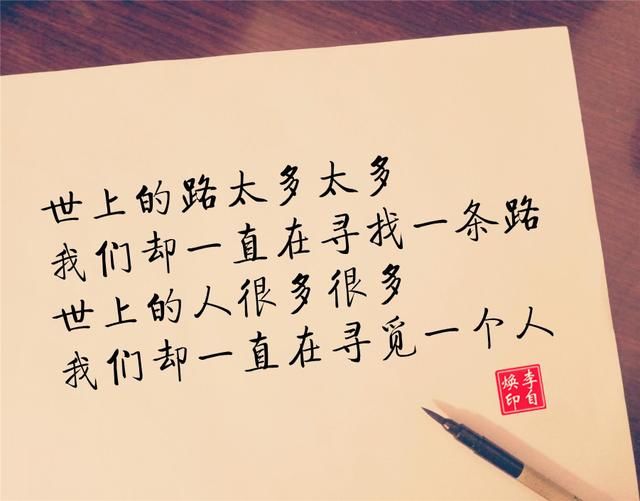 世上的路太多太多
我们却一直在寻找一条路
世上的人很多很多
我们却一直在寻觅一个人
李自
焕印